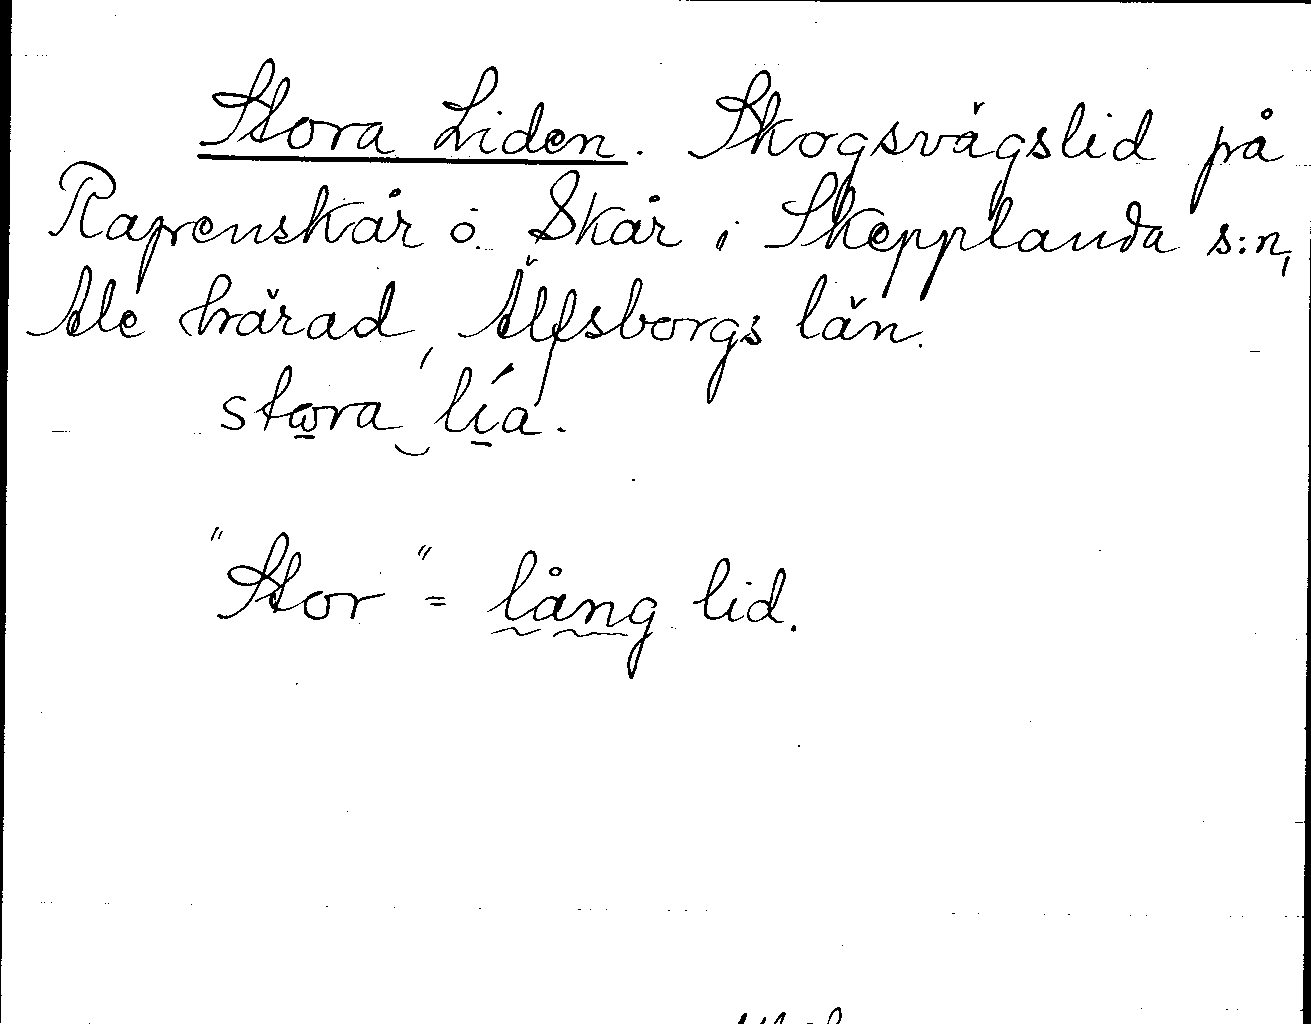 Stora Liden. Skogsvägslid på
Rapenskår o. Skår i Skepplanda s:n,
Ale härad, Älfsborgs län.
stωra‿lía.
"Stor" = lång lid.